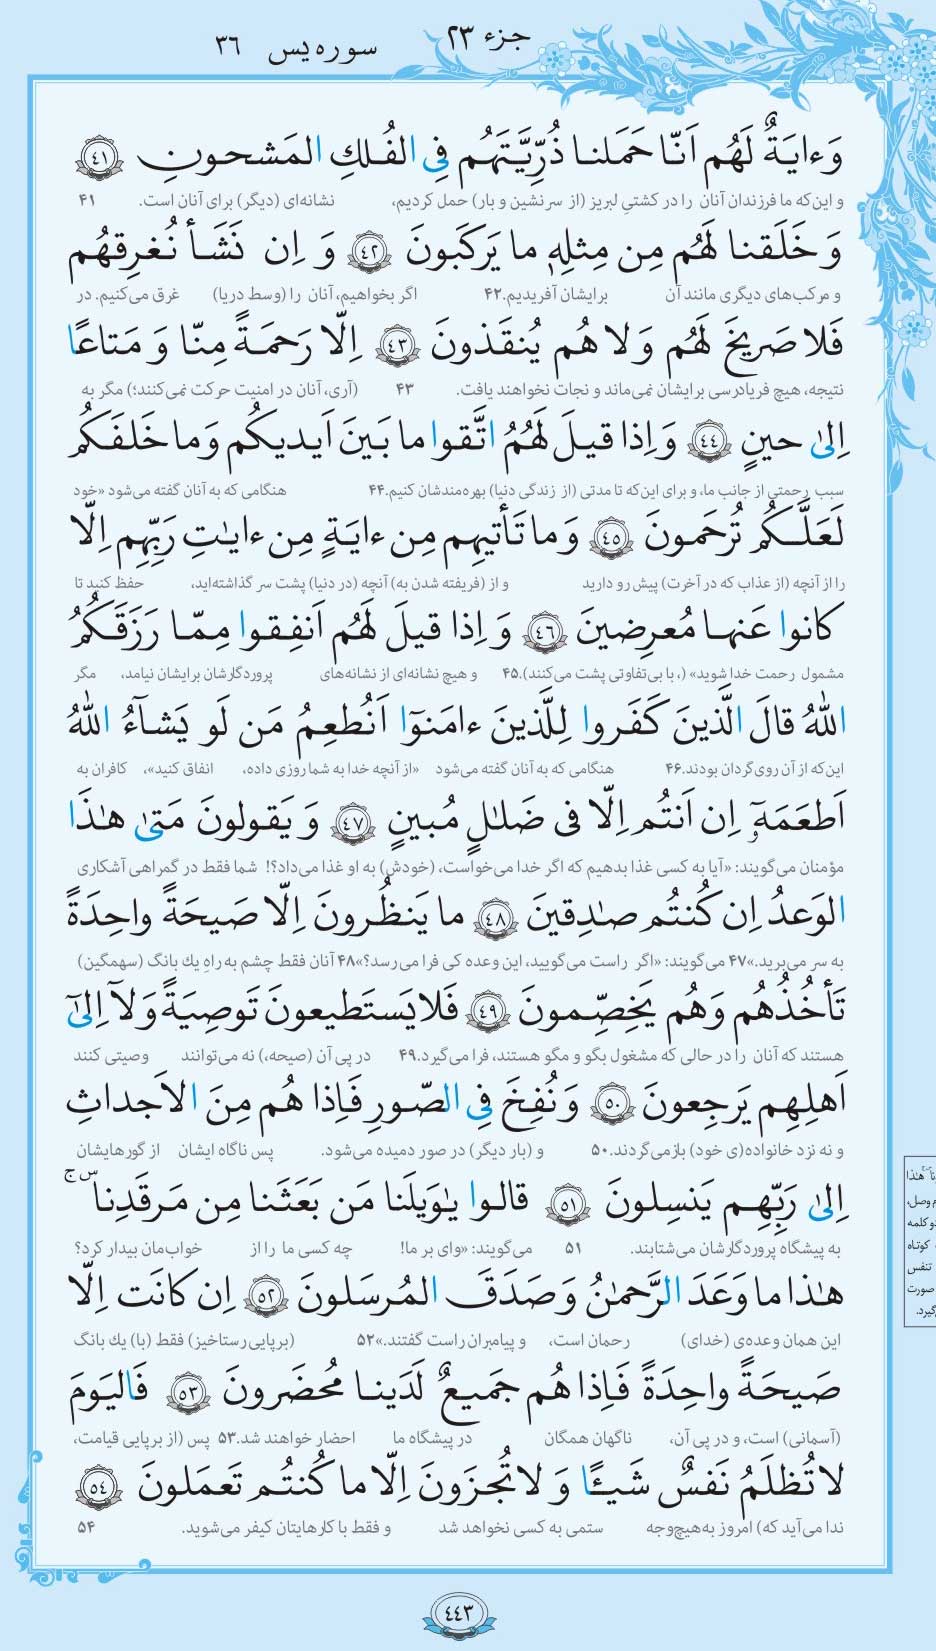 جزء ٢٣
سوره یس ٣٦
وَءايَةٌ لَهُم اَنّا حَمَلنا ذُرِّيَّتَهُم فِي الفُلكِ المَشحونِ ﴿٤١﴾
و این‌که ما فرزندان آنان را در کشتیِ لبریز (از سرنشین و بار) حمل کردیم، نشانه‌ای (دیگر) برای آنان است. ۴۱
وَ خَلَقنا لَهُم مِن مِثلِهٖ ما يَركَبونَ ﴿٤٢﴾ وَ اِن نَشَأ نُغرِقهُم
و مرکب‌های دیگری مانند آن برایشان آفریدیم.۴۲ اگر بخواهیم، آنان را (وسط دریا) غرق می‌کنیم. در
فَلا صَريخَ لَهُم وَلا هُم يُنقَذونَ ﴿٤٣﴾ اِلّا رَحمَةً مِنّا وَ مَتاعًا
نتیجه، هیچ فریادرسی برایشان نمی‌ماند و نجات نخواهند یافت. ۴۳ (آری، آنان در امنیت حرکت نمی‌کنند؛) مگر به
اِلىٰ حينٍ ﴿٤٤﴾ وَ اِذا قيلَ لَهُمُ اتَّقوا ما بَينَ اَيديكُم وَما خَلفَكُم
سبب رحمتی از جانب ما، و برای این‌که تا مدتی (از زندگی دنیا) بهره‌مندشان کنیم.۴۴ هنگامی که به آنان گفته می‌شود «خود
لَعَلَّكُم تُرحَمونَ ﴿٤٥﴾ وَما تَأتيهِم مِن ءايَةٍ مِن ءاياتِ رَبِّهِم اِلّا
را از آنچه (از عذاب که در آخرت) پیش رو دارید و از (فریفته شدن به) آنچه (در دنیا) پشت سر گذاشته‌اید، حفظ کنید تا
كانوا عَنها مُعرِضينَ ﴿٤٦﴾ وَ اِذا قيلَ لَهُم اَنفِقوا مِمّا رَزَقَكُمُ
مشمول رحمت خدا شوید» (، با بی‌تفاوتی پشت می‌کنند).۴۵ و هیچ نشانه‌ای از نشانه‌های پروردگارشان برایشان نیامد، مگر
اللهُ قالَ الَّذينَ كَفَروا لِلَّذينَ ءامَنوٓا اَنُطعِمُ مَن لَو يَشآءُ اللهُ
این‌که از آن روی‌گردان بودند.۴۶ هنگامی که به آنان گفته می‌شود «از آنچه خدا به شما روزی داده، انفاق کنید»، کافران به
اَطعَمَهٗٓ اِن اَنتُم اِلّا في ضَلالٍ مُبينٍ ﴿٤٧﴾ وَ يَقولونَ مَتىٰ هٰذَا
مؤمنان می‌گویند: «آیا به کسی غذا بدهیم که اگر خدا می‌خواست، (خودش) به او غذا می‌داد؟! شما فقط در گمراهی آشکاری
الوَعدُ اِن كُنتُم صادِقينَ ﴿٤٨﴾ ما يَنظُرونَ اِلّا صَيحَةً واحِدَةً
به سر می‌برید.»۴۷ می‌گویند: «اگر راست می‌گویید، این وعده کی فرا می‌رسد؟»۴۸ آنان فقط چشم به راهِ یك بانگ (سهمگین)
تَأخُذُهُم وَهُم يَخِصِّمونَ ﴿٤٩﴾ فَلا يَستَطيعونَ تَوصِيَةً وَلآ اِلىٰٓ
هستند که آنان را در حالی که مشغول بگو و مگو هستند، فرا می‌گیرد.۴۹ در پی آن (صیحه،) نه می‌توانند وصیتی کنند
اَهلِهِم يَرجِعونَ ﴿٥٠﴾ وَنُفِخَ فِي الصّورِ فَاِذا هُم مِنَ الاَجداثِ
و نه نزد خانواده(ی خود) بازمی‌گردند.۵۰ و (بار دیگر) در صور دمیده می‌شود. پس ناگاه ایشان از گورهایشان
اِلىٰ رَبِّهِم يَنسِلونَ ﴿٥١﴾ قالوا يٰوَيلَنا مَن بَعَثَنا مِن مَرقَدِنا ۜ ج
به پیشگاه پروردگارشان می‌شتابند. ۵۱ می‌گویند: «وای بر ما! چه کسی ما را از خوابمان بیدار کرد؟
هٰذا ما وَعَدَ الرَّحمٰنُ وَصَدَقَ المُرسَلونَ ﴿٥٢﴾ اِن كانَت اِلّا
این همان وعده‌ی (خدای) رحمان است، و پیامبران راست گفتند.»۵۲ (برپایی رستاخیز) فقط (با) یك بانگ
صَيحَةً واحِدَةً فَاِذا هُم جَميعٌ لَدَينا مُحضَرونَ ﴿٥٣﴾ فَاليَومَ
(آسمانی) است، و در پی آن، ناگهان همگان در پیشگاه ما احضار خواهند شد.۵۳ پس (از برپایی قیامت،
لا تُظلَمُ نَفسٌ شَيـًٔا وَ لا تُجزَونَ اِلّا ما كُنتُم تَعمَلونَ ﴿٥٤﴾
ندا می‌آید که) امروز به‌هیچ‌وجه ستمی به کسی نخواهد شد و فقط با کارهایتان کیفر می‌شوید. ۵۴
هٰذا
م وصل،
دو کلمه
کوتاه
تنفس
صورت
گیرد.
٤٤٣